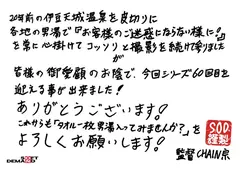 20年前の伊豆天城温泉を皮切りに
各地の男湯で『お客様のご迷惑にならない様に!』
を常に心掛けてコッソリと撮影を続けて参りました
が
皆様の御愛顧のお陰で、今回シリーズ60回目を
迎える事が出来ました!
ありがとうございます!
これからも「タオル一枚男湯入ってみませんか?」を
よろしくお願いします!
SOD
謹製
監督CHAIN泉
DEMAND